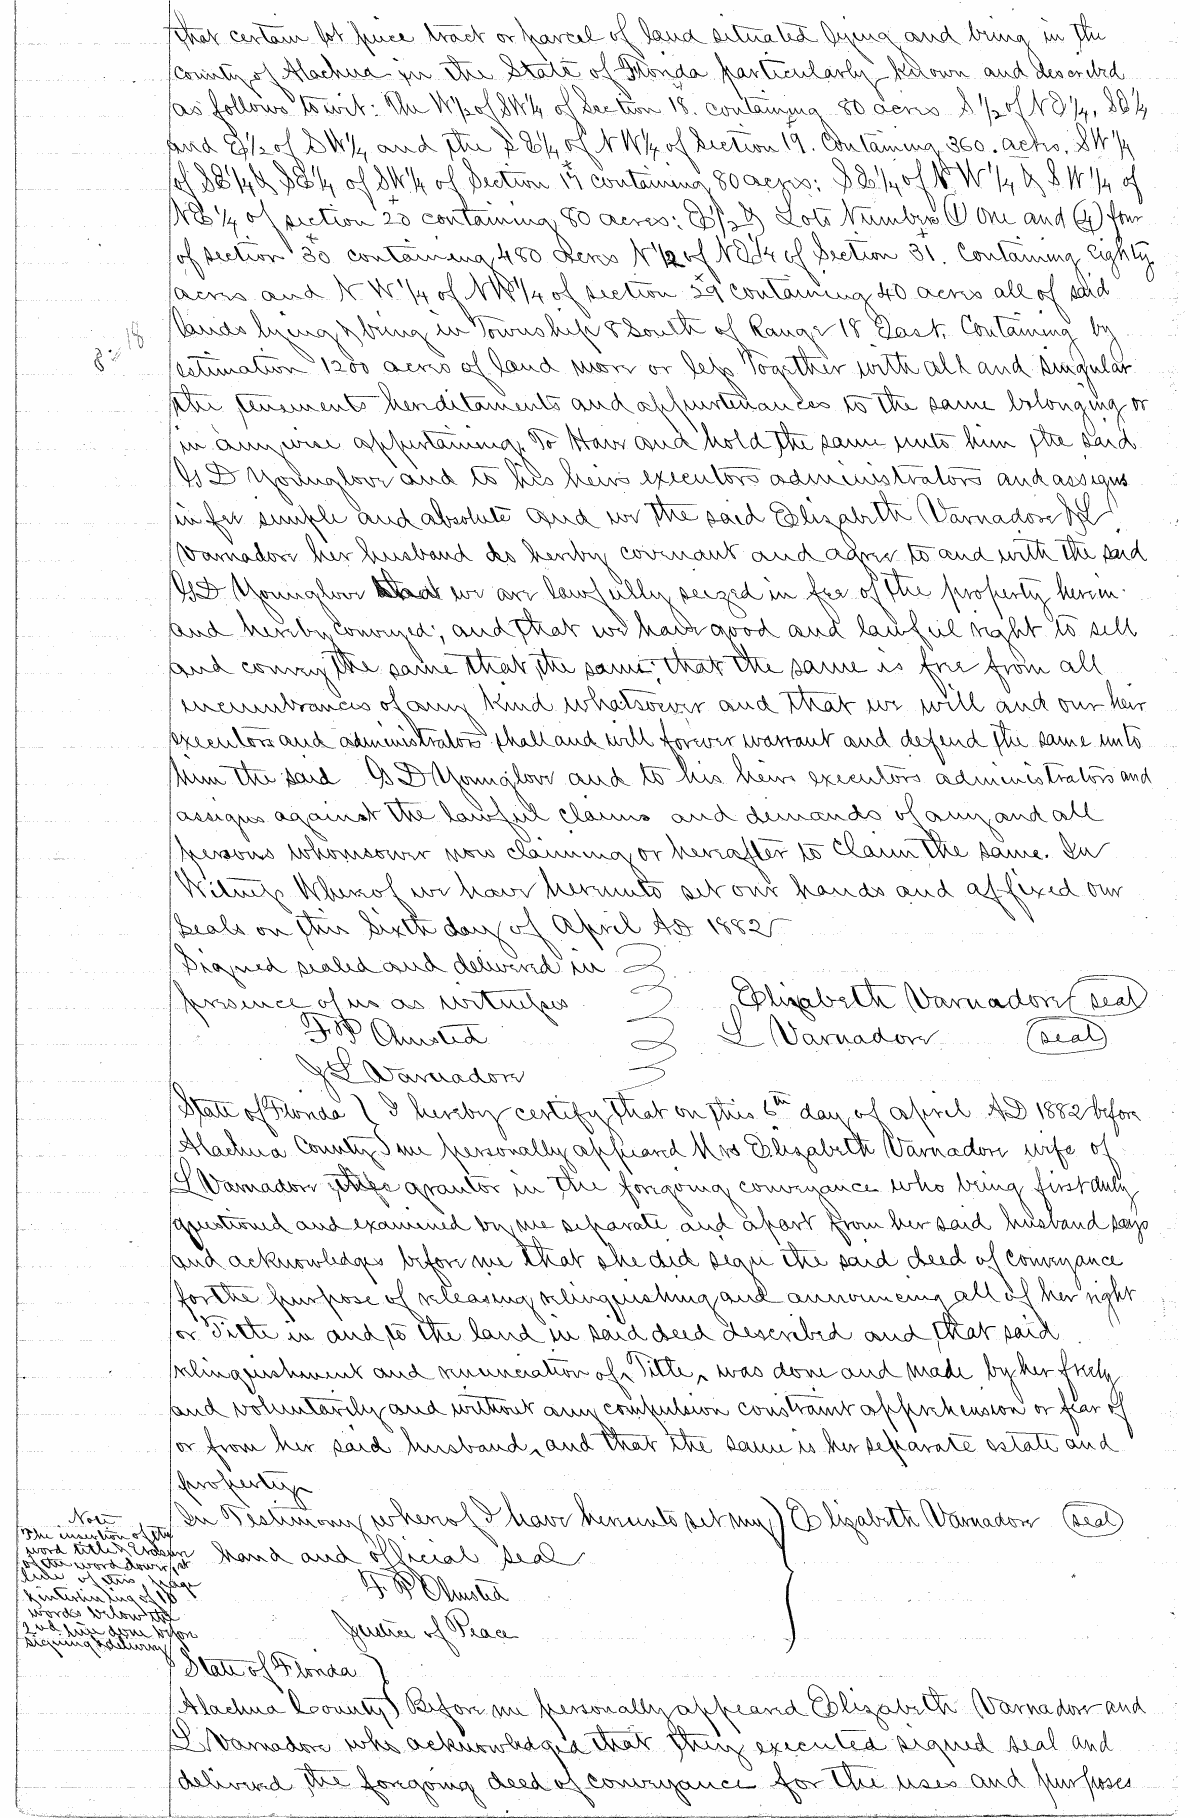 that certain lot piece tract or parcel of land situated lying and being in the
County of Alachua in the State of Florida particularly known and described
as follows to wit: The W½ of SW¼ of Section 18. containing 80 acres S½ of NE¼, SE¼
and E½ of SW¼ and the SE¼ of NW¼ of Section 19. Containing 360. acres, SW¼
of SE¼ & SE¼ of SW¼ of Section 17 containing 80 acres; SE¼ of NW¼ & SW¼ of
NE¼ of section 20 containing 80 acres: E½ & Lots Numbers (1) One and (4) four
of section 30 containing 480 acres N½ of NE¼ of Section 31. Containing Eighty
acres and NW¼ of NW¼ of section 29 containing 40 acres all of said
8=18
lands lying & being in Township 8 South of Range 18 East. Containing by
estimation 1200 acres of land more or less Together with all and singular
the tenements hereditaments and appurtenances to the same belonging or
in anywise appertaining. To Have and hold the same unto him the said
G D Younglove and to his heirs executors administrators and assigns
in fee simple and absolute and we the said Elizabeth Varnadore & L
Varnadore her husband do hereby covenant and agree to and with the said
G D Younglove that we are lawfully seized in fee of the property herein
and hereby conveyed; and that we have good and lawful right to sell
and convey the same that the same; that the same is free from all
incumbrances of any kind whatsoever and that we will and our heir
executors and administrators shall and will forever warrant and defend the same unto
him the said G D Younglove and to his heirs executors administrators and
assigns against the lawful claims and demands of any and all
persons whomsoever now claiming or hereafter to Claim the same. In
Witness Whereof we have hereunto set our hands and affixed our
seals on this Sixth day of April AD 1882
Signed sealed and delivered in
presence of us as witnesses Elizabeth Varnadore (seal)
F P Olmsted L Varnadore (seal)
J L Varnadore
State of Florida } I hereby certify that on this 6th day of April AD 1882 before
Alachua County } me personally appeared Mrs Elizabeth Varnadore wife of
L Varnadore grantor in the foregoing conveyance who being first duly
questioned and examined by me separate and apart from her said husband says
and acknowledges before me that she did sign the said deed of conveyance
for the purpose of releasing relinquishing and announcing all of her right
or Title in and to the land in said deed described and that said
relinquishment and renunciation of Title, was done and made by her freely
and voluntarily and without any compulsion constraint apprehension or fear of
or from her said husband, and that the same is her separate estate and
property
In Testimony whereof I have hereunto set my } Elizabeth Varnadore (seal)
hand and official seal
F P Olmsted
Justice of Peace
Note
The insertion of the
word title & Erasure
of the word dower, 1st
line of this page
& interlining of 10
words below the
2nd line done before
signing & delivery
State of Florida }
Alachua County } Before me personally appeared Elizabeth Varnadore and
L Varnadore who acknowledged that they executed signed seal and
delivered the foregoing deed of conveyance for the uses and purposes